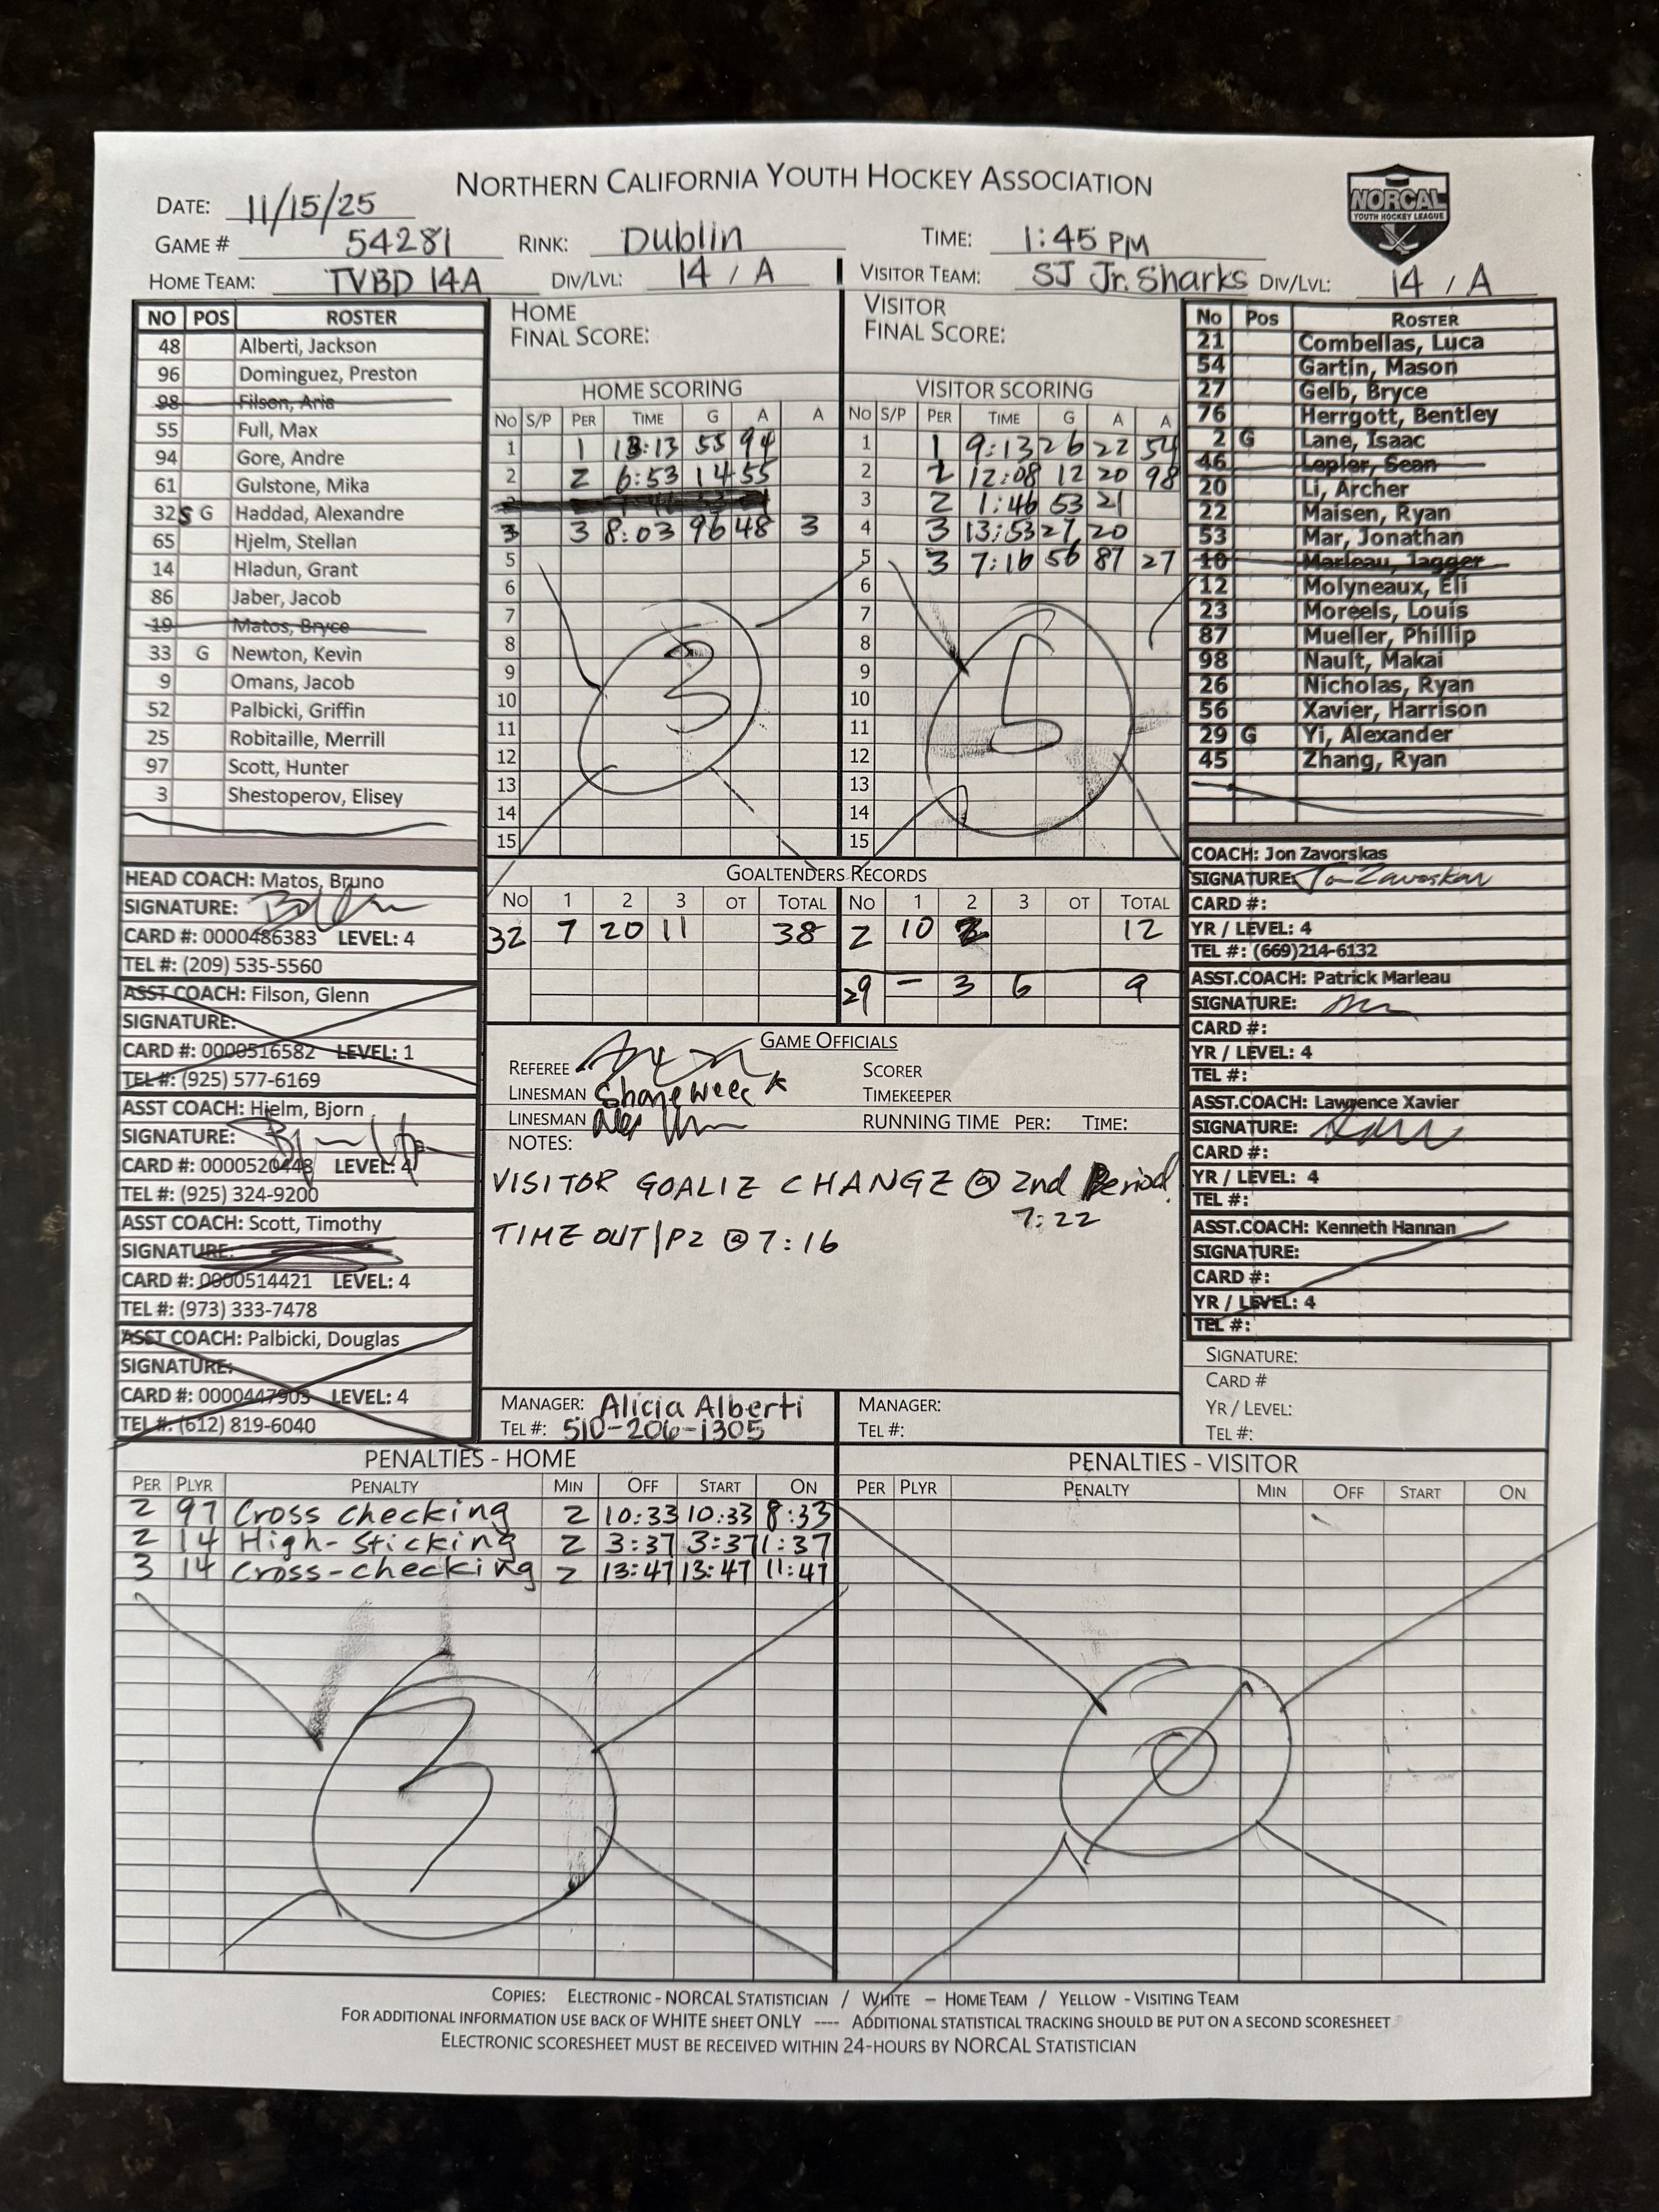 NORTHERN CALIFORNIA YOUTH HOCKEY ASSOCIATION
NORCAL
YOUTH HOCKEY LEAGUE
DATE: 11/15/25
GAME # 54281 RINK: Dublin TIME: 1:45 PM
HOME TEAM: TVBD 14A DIV/LVL: 14 / A VISITOR TEAM: SJ Jr. Sharks DIV/LVL: 14 / A
NO POS ROSTER
48 Alberti, Jackson
96 Dominguez, Preston
98 Filson, Aria
55 Full, Max
94 Gore, Andre
61 Gulstone, Mika
32 S G Haddad, Alexandre
65 Hjelm, Stellan
14 Hladun, Grant
86 Jaber, Jacob
19 Matos, Bryce
33 G Newton, Kevin
9 Omans, Jacob
52 Palbicki, Griffin
25 Robitaille, Merrill
97 Scott, Hunter
3 Shestoperov, Elisey
HEAD COACH: Matos, Bruno
SIGNATURE:
CARD #: 0000486383 LEVEL: 4
TEL #: (209) 535-5560
ASST COACH: Filson, Glenn
SIGNATURE:
CARD #: 0000516582 LEVEL: 1
TEL #: (925) 577-6169
ASST COACH: Hjelm, Bjorn
SIGNATURE:
CARD #: 0000520448 LEVEL: 4
TEL #: (925) 324-9200
ASST COACH: Scott, Timothy
SIGNATURE:
CARD #: 0000514421 LEVEL: 4
TEL #: (973) 333-7478
ASST COACH: Palbicki, Douglas
SIGNATURE:
CARD #: 0000447903 LEVEL: 4
TEL #: (612) 819-6040
HOME
FINAL SCORE:
HOME SCORING
NO S/P PER TIME G A A
1 1 13:13 55 94
2 2 6:53 14 55
3 3 8:03 96 48 3
5
6
7
8
9
10
11
12
13
14
15
3
VISITOR
FINAL SCORE:
VISITOR SCORING
NO S/P PER TIME G A A
1 1 9:13 26 22 54
2 2 12:08 12 20 98
3 2 1:46 53 21
4 3 13:53 27 20
5 3 7:16 56 87 27
6
7
8
9
10
11
12
13
14
15
5
GOALTENDERS RECORDS
NO 1 2 3 OT TOTAL NO 1 2 3 OT TOTAL
32 7 20 11 38 2 10 2 12
29 - 3 6 9
GAME OFFICIALS
REFEREE SCORER
LINESMAN Shane TIMEKEEPER
LINESMAN Alex RUNNING TIME PER: TIME:
NOTES:
VISITOR GOALIE CHANGE @ 2nd Period
7:22
TIME OUT | P2 @ 7:16
MANAGER: Alicia Alberti
TEL #: 510-206-1305
MANAGER:
TEL #:
No Pos ROSTER
21 Combellas, Luca
54 Gartin, Mason
27 Gelb, Bryce
76 Herrgott, Bentley
2 G Lane, Isaac
46 Lepler, Sean
20 Li, Archer
22 Maisen, Ryan
53 Mar, Jonathan
10 Marleau, Jagger
12 Molyneaux, Eli
23 Moreels, Louis
87 Mueller, Phillip
98 Nault, Makai
26 Nicholas, Ryan
56 Xavier, Harrison
29 G Yi, Alexander
45 Zhang, Ryan
COACH: Jon Zavorskas
SIGNATURE: Jon Zavorskas
CARD #:
YR / LEVEL: 4
TEL #: (669)214-6132
ASST.COACH: Patrick Marleau
SIGNATURE:
CARD #:
YR / LEVEL: 4
TEL #:
ASST.COACH: Lawrence Xavier
SIGNATURE:
CARD #:
YR / LEVEL: 4
TEL #:
ASST.COACH: Kenneth Hannan
SIGNATURE:
CARD #:
YR / LEVEL: 4
TEL #:
SIGNATURE:
CARD #
YR / LEVEL:
TEL #:
PENALTIES - HOME
PER PLYR PENALTY MIN OFF START ON
2 97 Cross checking 2 10:33 10:33 8:33
2 14 High-sticking 2 3:37 3:37 1:37
3 14 Cross-checking 2 13:47 13:47 11:47
3
PENALTIES - VISITOR
PER PLYR PENALTY MIN OFF START ON
0
COPIES: ELECTRONIC - NORCAL STATISTICIAN / WHITE – HOME TEAM / YELLOW - VISITING TEAM
FOR ADDITIONAL INFORMATION USE BACK OF WHITE SHEET ONLY ---- ADDITIONAL STATISTICAL TRACKING SHOULD BE PUT ON A SECOND SCORESHEET
ELECTRONIC SCORESHEET MUST BE RECEIVED WITHIN 24-HOURS BY NORCAL STATISTICIAN